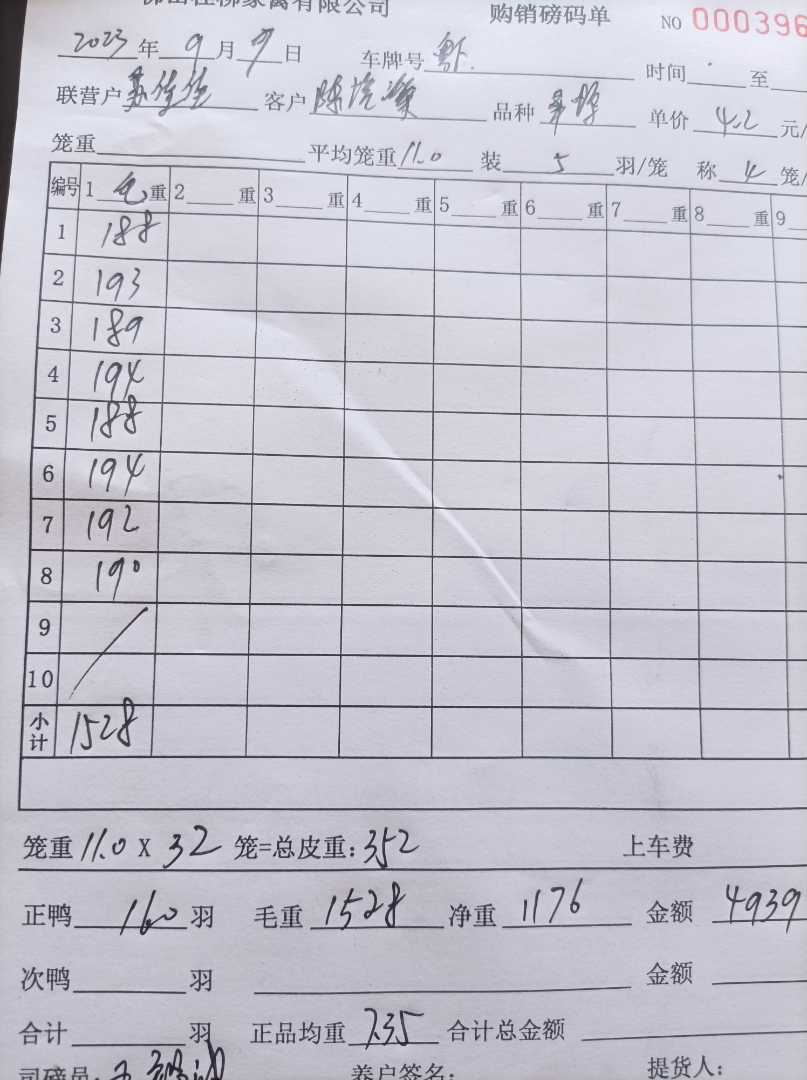 家禽有限公司 购销磅码单 NO 000396
2023年9月7日 车牌号 时间 至
联营户 客户 品种 单价4.2元/
笼重 平均笼重11.0 装5羽/笼 称4笼/
编号 1毛重 2重 3重 4重 5重 6重 7重 8重 9
1 188
2 193
3 189
4 194
5 188
6 194
7 192
8 190
9
10
小计 1528
笼重11.0X32笼=总皮重:352 上车费
正鸭160羽 毛重1528 净重1176 金额4939
次鸭 羽 金额
合计 羽 正品均重7.35 合计总金额
司磅员: 养户签名: 提货人: